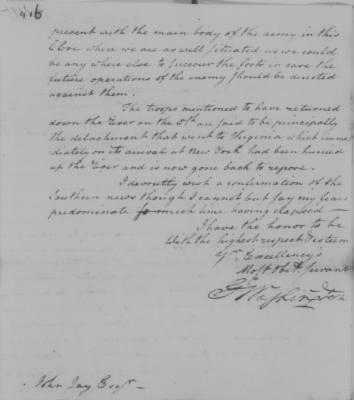 416
present with the main body of the army in this
Clove where we are as well situated as we could
be any where else to succour the forts in case the
future operations of the enemy should be directed
against them.
The troops mentioned to have returned
down the River on the 5th. are said to be principally
the detachment that went to Virginia which imme
diately on its arrival at New York had been hurried
up the River and is now gone back to repose.
I devoutly wish a confirmation of the
Southern news though I cannot but say my fears
predominate so much time having elapsed —
I have the honor to be
With the highest respect & esteem
Yr. Excellency's
Most Obet. Servant
Go: Washington
John Jay Esqr. —